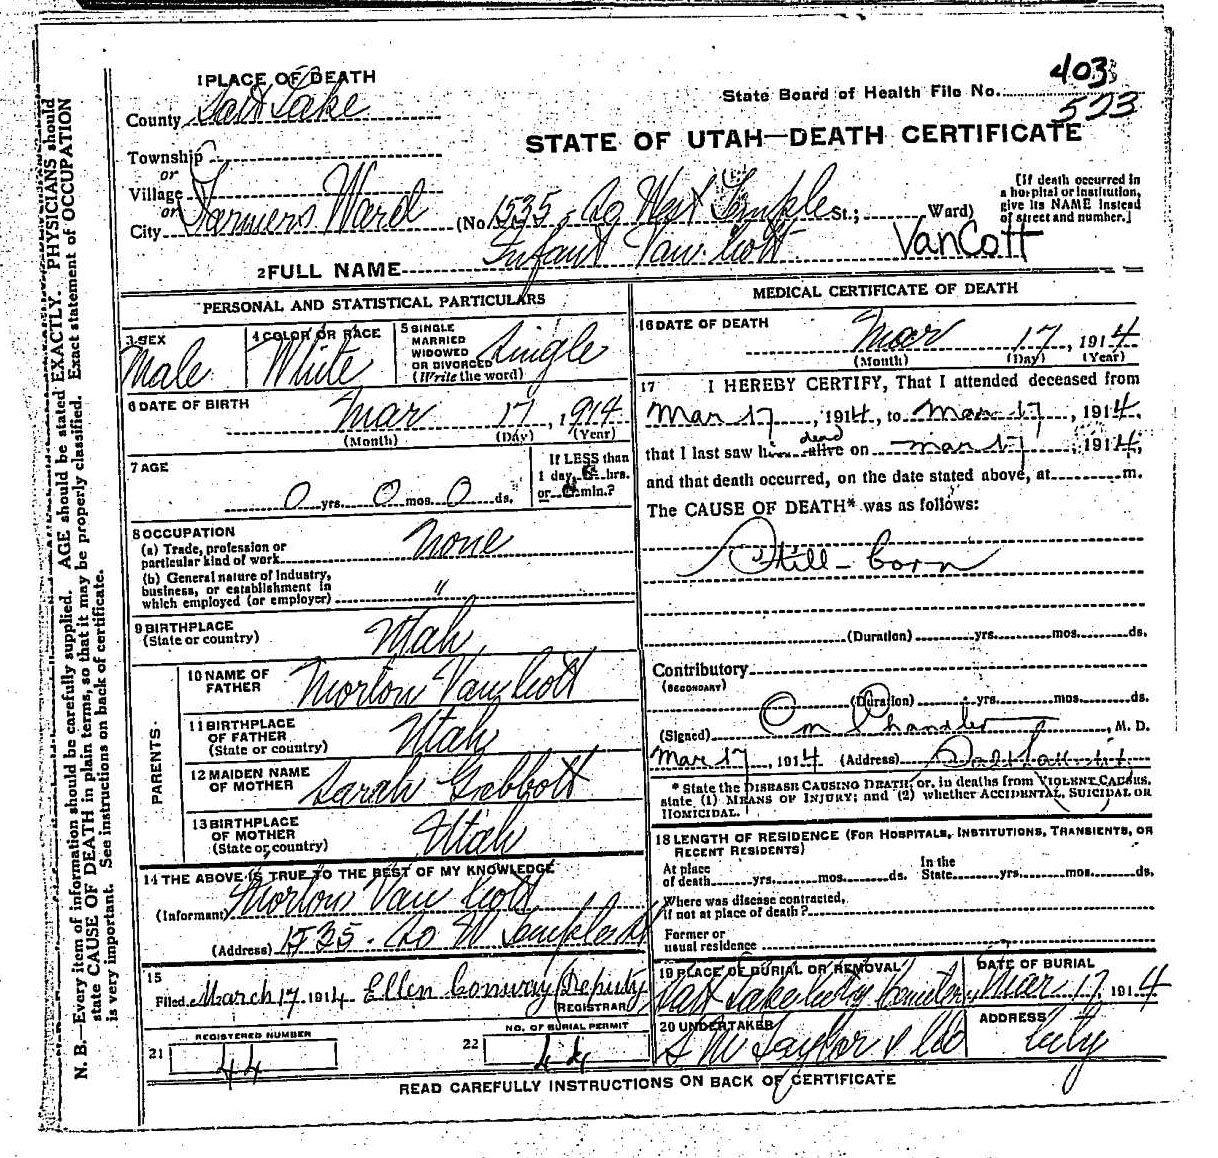 1 PLACE OF DEATH
County Salt Lake
Township
or
Village
or
City Farmers Ward (No. 1535 So West Temple St.; Ward)
[If death occurred in
a hospital or institution,
give its NAME instead
of street and number.]
State Board of Health File No. 403
523
STATE OF UTAH—DEATH CERTIFICATE
2 FULL NAME Infant Van Cott
VanCott
PERSONAL AND STATISTICAL PARTICULARS
3 SEX
Male
4 COLOR OR RACE
White
5 SINGLE
MARRIED
WIDOWED
OR DIVORCED
(Write the word)
Single
6 DATE OF BIRTH
Mar 17, 1914
(Month) (Day) (Year)
7 AGE
0 yrs. 0 mos. 0 ds.
If LESS than
1 day, hrs.
or min.?
8 OCCUPATION
(a) Trade, profession or
particular kind of work None
(b) General nature of industry,
business, or establishment in
which employed (or employer) "
9 BIRTHPLACE
(State or country) Utah
PARENTS.
10 NAME OF
FATHER Morton Van Cott
11 BIRTHPLACE
OF FATHER
(State or country) Utah
12 MAIDEN NAME
OF MOTHER Sarah Gabbott
13 BIRTHPLACE
OF MOTHER
(State or country) Utah
14 THE ABOVE IS TRUE TO THE BEST OF MY KNOWLEDGE
(Informant) Morton Van Cott
(Address) 1535 So W Temple St
15
Filed March 17 1914 Ellen Conway Deputy
REGISTRAR
REGISTERED NUMBER
21 44
NO. OF BURIAL PERMIT
22 44
MEDICAL CERTIFICATE OF DEATH
16 DATE OF DEATH
Mar 17, 1914
(Month) (Day) (Year)
17 I HEREBY CERTIFY, That I attended deceased from
Mar 17, 1914, to Mar 17, 1914,
dead
that I last saw him alive on Mar 17, 1914,
and that death occurred, on the date stated above, at m.
The CAUSE OF DEATH* was as follows:
Still-born
(Duration) yrs. mos. ds.
Contributory
(SECONDARY)
(Duration) yrs. mos. ds.
(Signed) Chandler, M. D.
Mar 17, 1914 (Address)
* State the DISEASE CAUSING DEATH; or, in deaths from VIOLENT CAUSES,
state (1) MEANS OF INJURY; and (2) whether ACCIDENTAL, SUICIDAL OR
HOMICIDAL.
18 LENGTH OF RESIDENCE (FOR HOSPITALS, INSTITUTIONS, TRANSIENTS, OR
RECENT RESIDENTS)
At place
of death yrs. mos. ds.
In the
State yrs. mos. ds.
Where was disease contracted,
if not at place of death?
Former or
usual residence
19 PLACE OF BURIAL OR REMOVAL
Salt Lake City Cemetery
DATE OF BURIAL
Mar 17, 1914
20 UNDERTAKER
S M Taylor & Co
ADDRESS
City
READ CAREFULLY INSTRUCTIONS ON BACK OF CERTIFICATE
N. B.—Every item of information should be carefully supplied. AGE should be stated EXACTLY. PHYSICIANS should
state CAUSE OF DEATH in plain terms, so that it may be properly classified. Exact statement of OCCUPATION
is very important. See instructions on back of certificate.